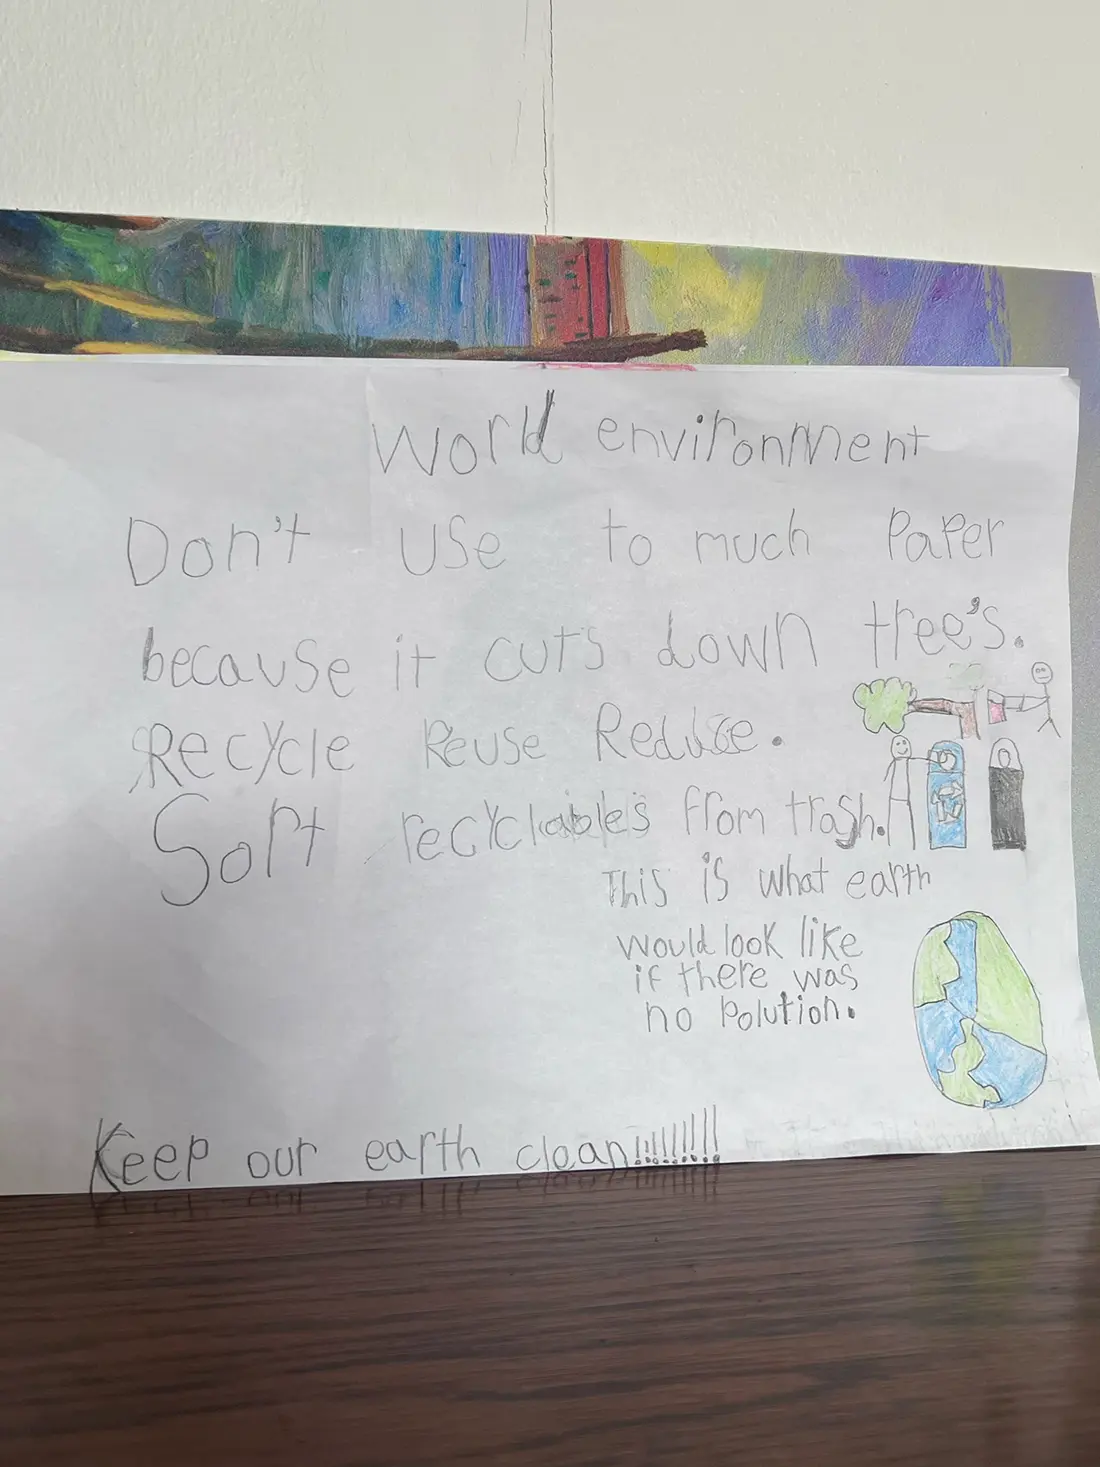 World environment
Don't use to much Paper
because it cuts down tree's.
Recycle Reuse Reduse.
Sort recyclables from trash.
This is what earth
would look like
if there was
no Polution.
Keep our earth clean!!!!!!!!!